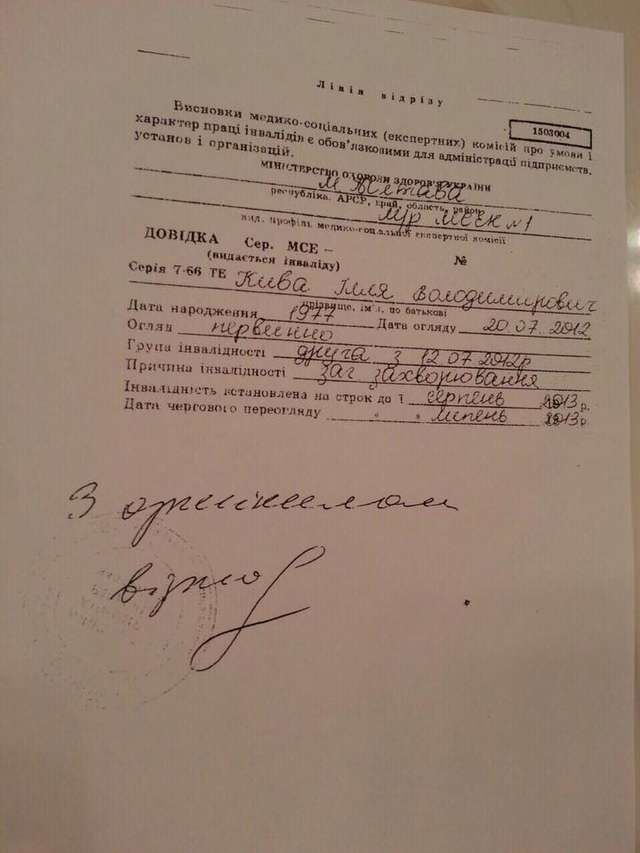 Лінія відрізу
1503004
Висновки медико-соціальних (експертних) комісій про умови і
характер праці інвалідів є обов'язковими для адміністрації підприємств,
установ і організацій.
МІНІСТЕРСТВО ОХОРОНИ ЗДОРОВ'Я УКРАЇНИ
м Полтава
республіка, АРСР, край, область, район
МСЕК №1
вид, профіль медико-соціальної експертної комісії
ДОВІДКА Сер. МСЕ – №
(видається інваліду)
Серія 7-66 ТЕ Кива Ілля Володимирович
прізвище, ім'я, по батькові
Дата народження 1977 Дата огляду 20.07.2012
Огляд первинно
Група інвалідності друга з 12.07.2012р
Причина інвалідності заг захворювання
Інвалідність встановлена на строк до 1 серпень 2013 р.
Дата чергового переогляду " " липень 2013 р.
З оригіналом
вірно